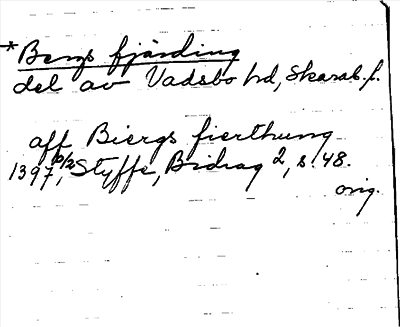 *Bergs fjärding
del av Vadsbo hd, Skarab. l.
aff Biergs fierthung
1397 10/3, Styffe, Bidrag 2, s. 48.
orig.